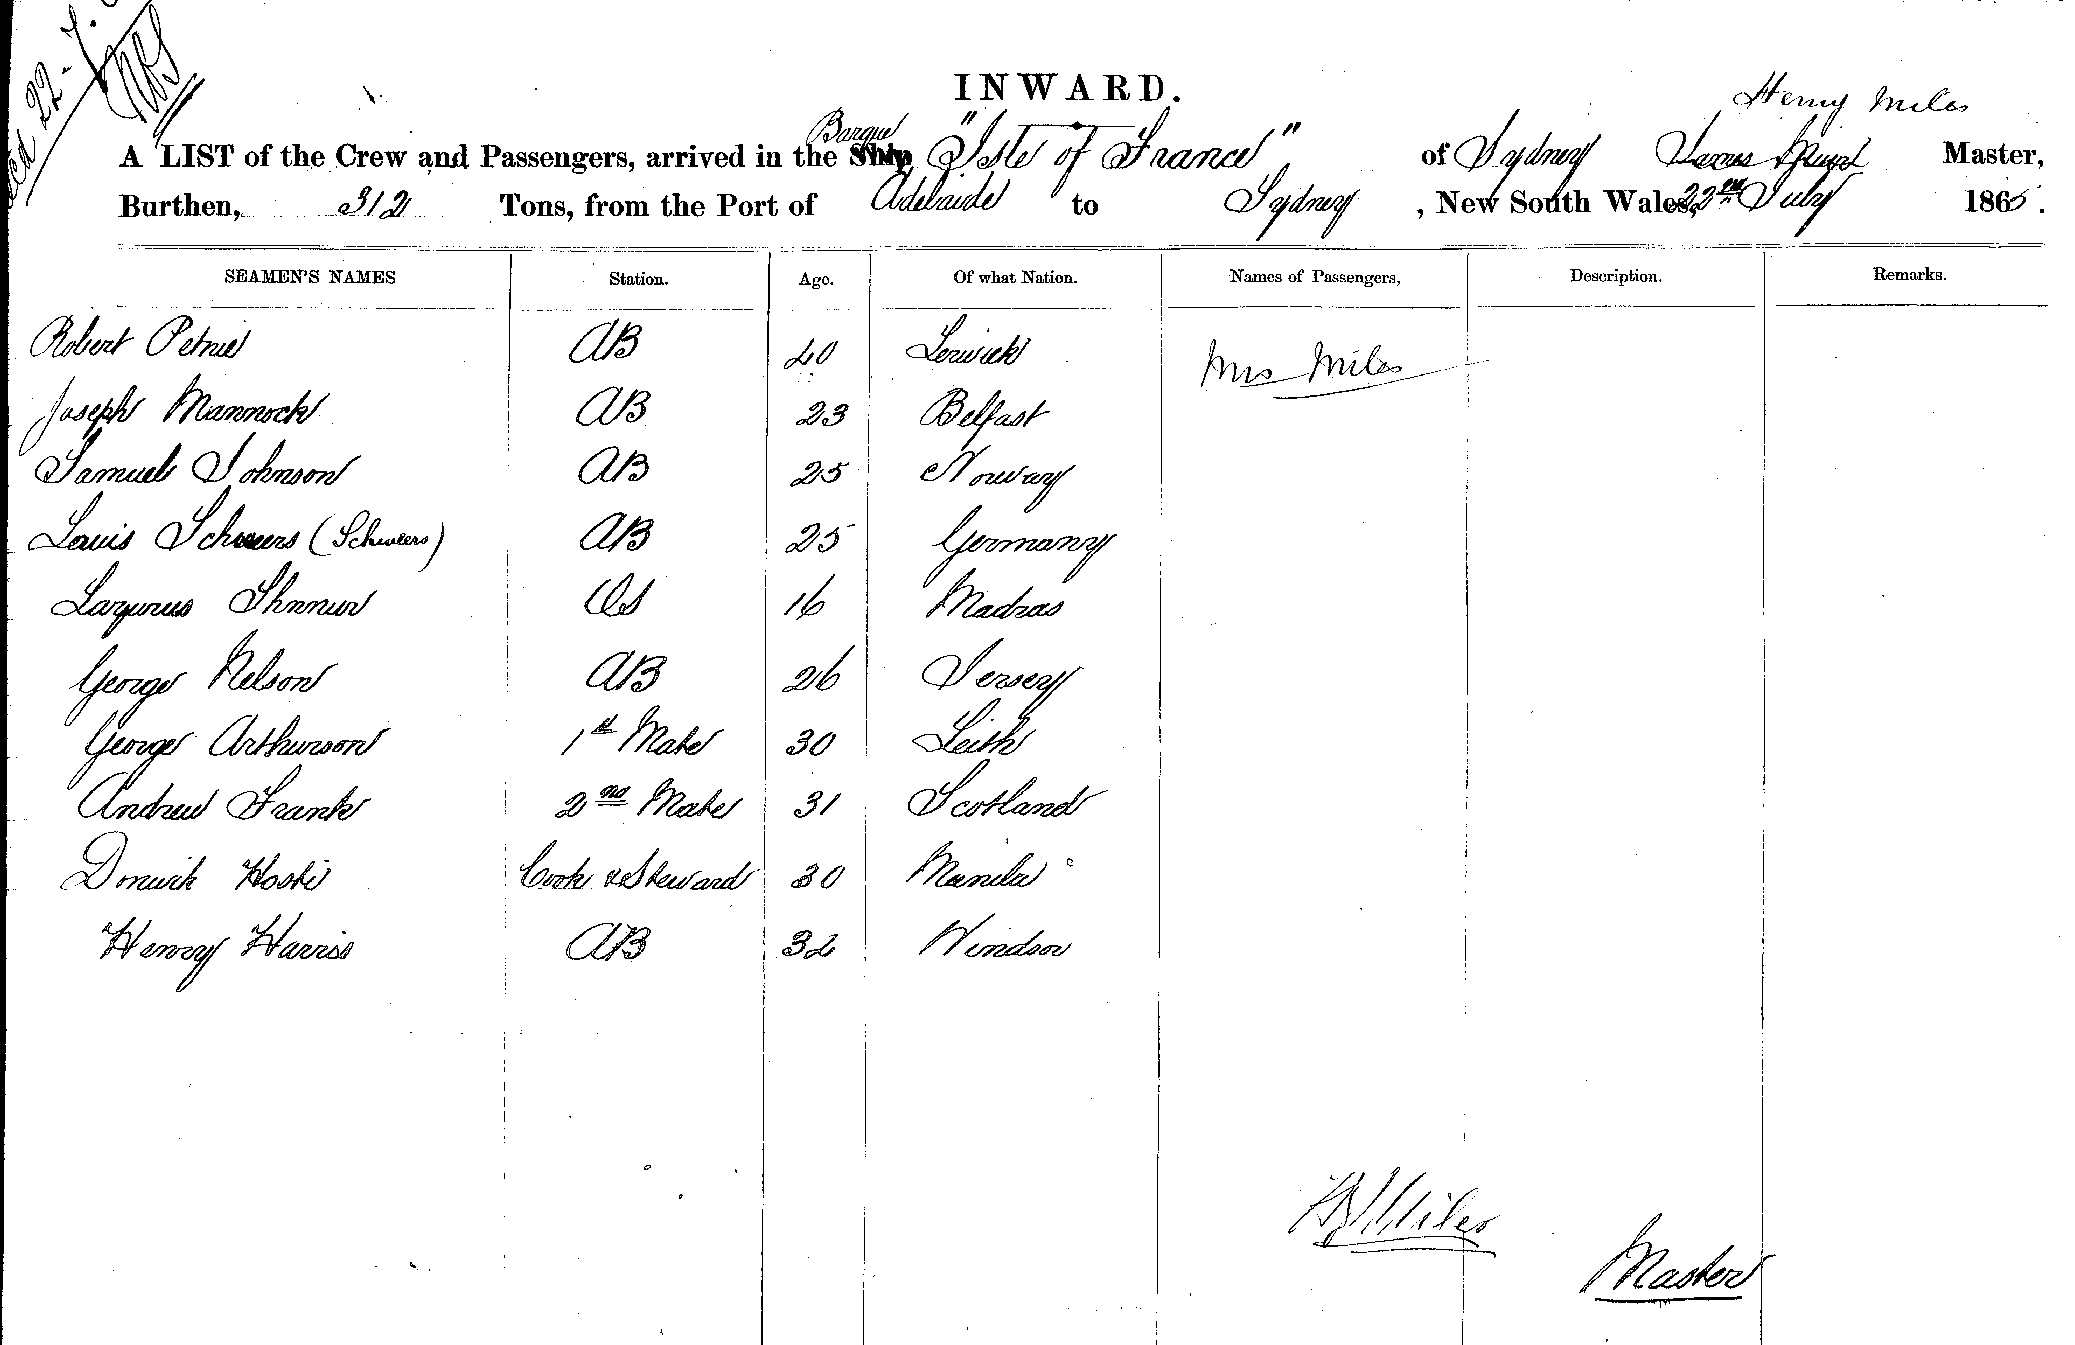 22-7.
INWARD.
Henry Miles
Barque
A LIST of the Crew and Passengers, arrived in the Ship "Isle of France" of Sydney James Master,
Burthen, 312 Tons, from the Port of Adelaide to Sydney, New South Wales, 22nd July 1865.
SEAMEN'S NAMES Station. Age. Of what Nation. Names of Passengers, Description. Remarks.
Robert Petrie AB 40 Lerwick Mrs Miles
Joseph Mannock AB 23 Belfast
Samuel Johnson AB 25 Norway
Louis Schweers (Schweers) AB 25 Germany
Lazurus OS 16 Madras
George Nelson AB 26 Jersey
George Arthurson 1st Mate 30 Leith
Andrew Frank 2nd Mate 31 Scotland
Hosti Cook & Steward 30 Manila
Henry Harris AB 32 Windsor
H Miles
Master